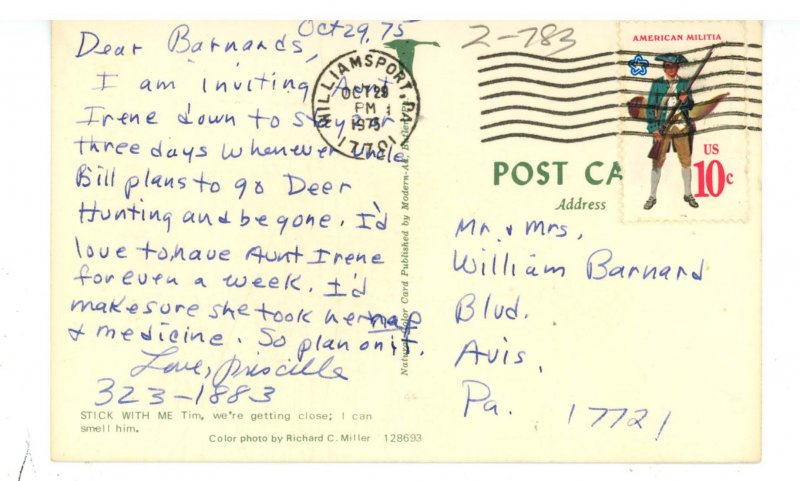 Oct 29, 75
Dear Barnards,
I am inviting Aunt
Irene down to stay for
three days whenever Uncle
Bill plans to go Deer
Hunting and be gone. I'd
love to have Aunt Irene
for even a week. I'd
make sure she took her nap
& medicine. So plan on it.
Love, Priscilla
323-1883
STICK WITH ME Tim, we're getting close; I can
smell him.
Color photo by Richard C. Miller 128693
Natural Color Card Published by Modern-Ad, Butler, Pa.
WILLIAMSPORT, PA
OCT 29
PM
1975
177
2-783
AMERICAN MILITIA
US
10c
POST CA
Address
Mr. & Mrs.
William Barnard
Blvd.
Avis,
Pa. 17721